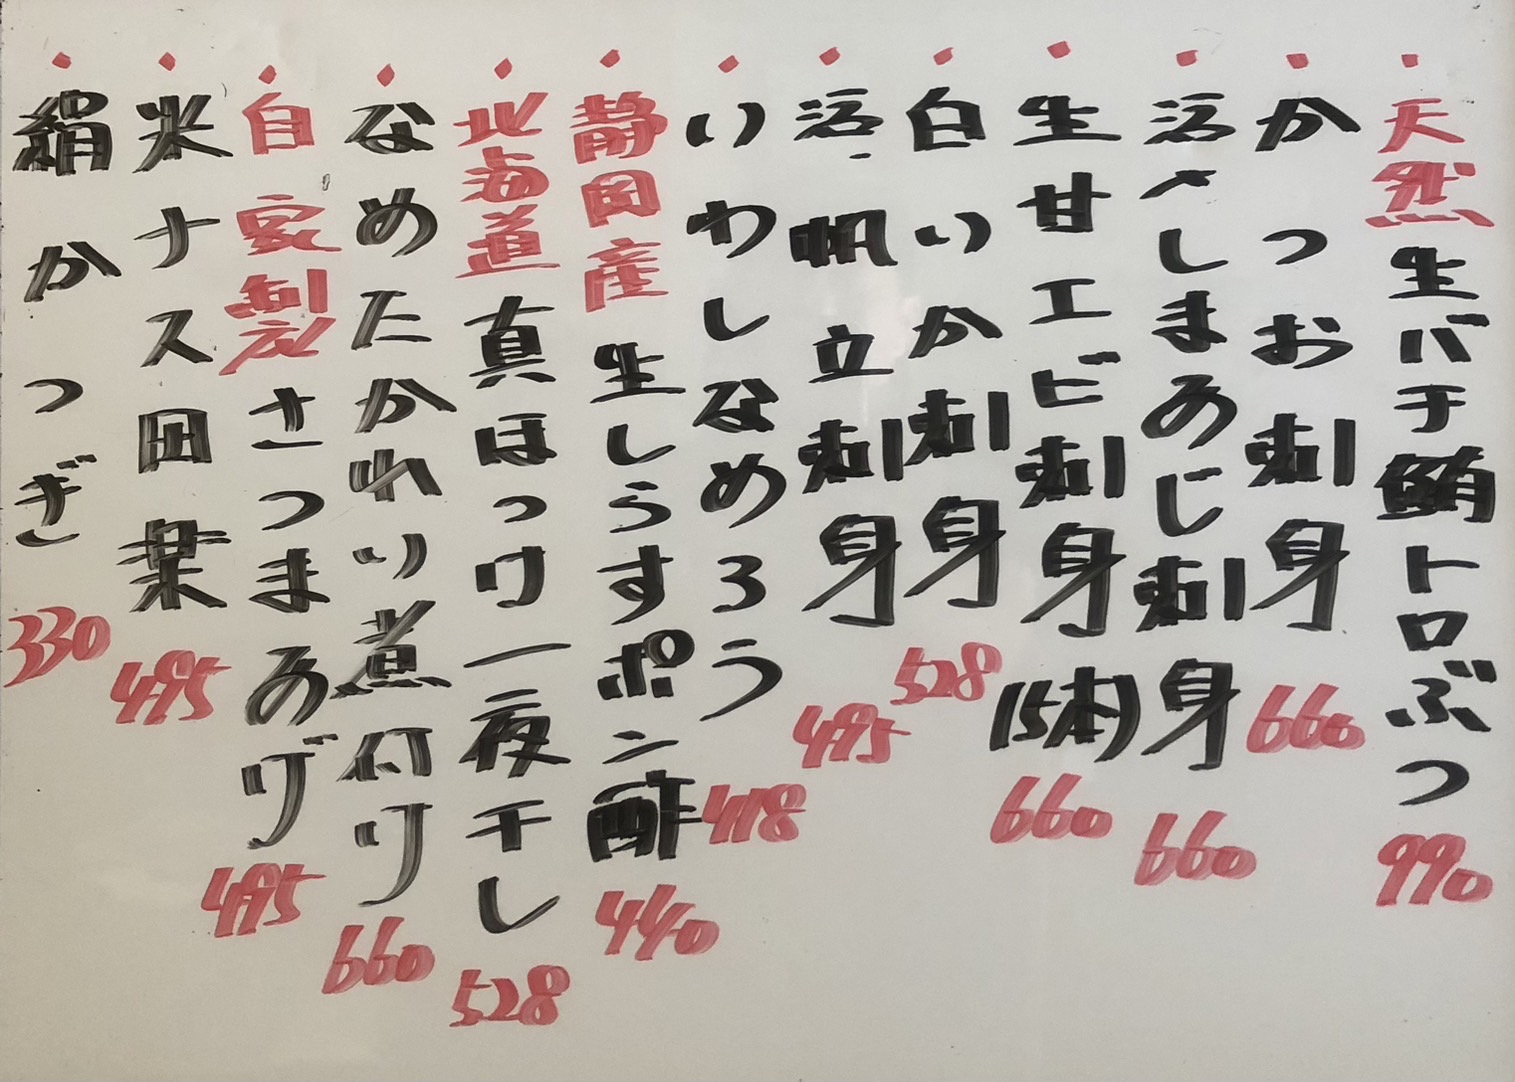 ・天然生バチ鮪トロぶつ 990
・かつお刺身 660
・活〆しまあじ刺身 660
・生甘エビ刺身(5本) 660
・白いか刺身 528
・活帆立刺身 495
・いわしなめろう 418
・静岡産生しらすポン酢 440
・北海道真ほっけ一夜干し 528
・なめたかれい煮付け 660
・自家製さつまあげ 495
・米ナス田楽 495
・絹かつぎ 330